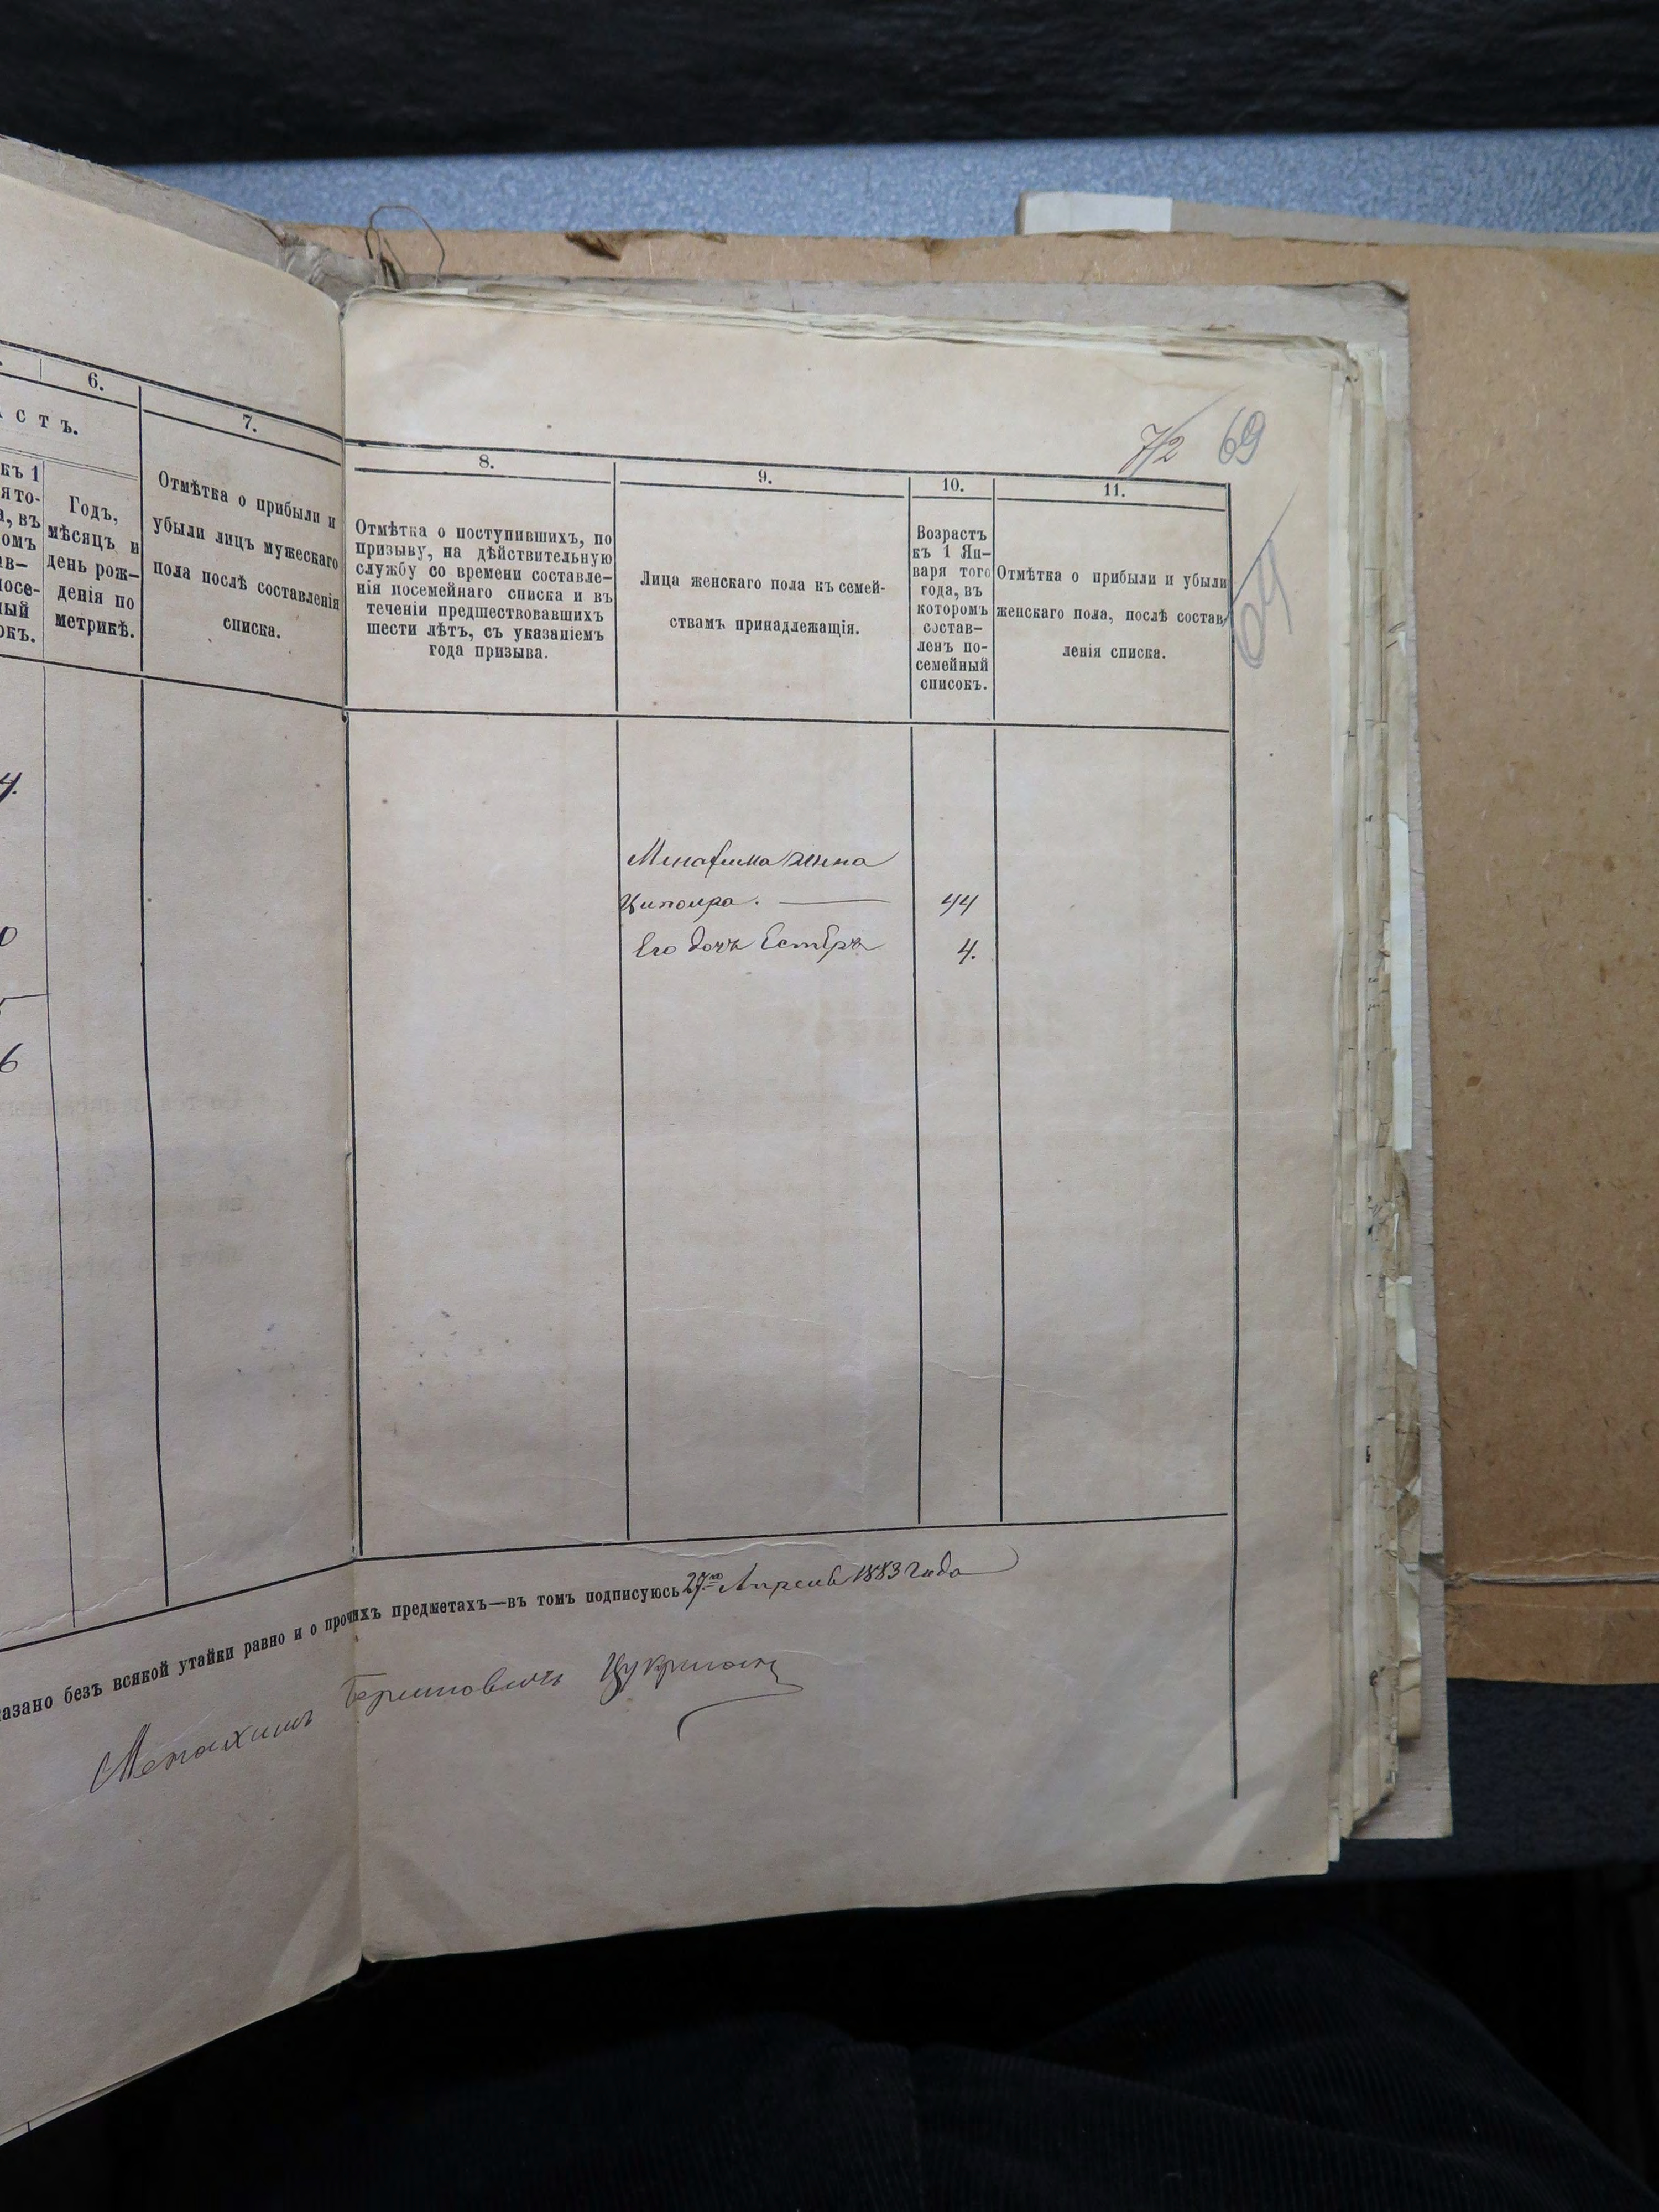 6.
7.
с т ъ.
къ 1
Годъ,
мѣсяцъ и
день рож-
денія по
метрикѣ.
Отмѣтка о прибыли и
убыли лицъ мужескаго
пола послѣ составленія
списка.
4.
0
6
72 69
8.
9.
10.
11.
Отмѣтка о поступившихъ, по
призыву, на дѣйствительную
службу со времени составле-
нія посемейнаго списка и въ
теченіи предшествовавшихъ
шести лѣтъ, съ указаніемъ
года призыва.
Лица женскаго пола къ семей-
ствамъ принадлежащія.
Возрастъ
къ 1 Ян-
варя того
года, въ
которомъ
состав-
ленъ по-
семейный
списокъ.
Отмѣтка о прибыли и убыли
женскаго пола, послѣ состав-
ленія списка.
69
Менахима жена
Ципойра. — 44
Его дочь Естеръ 4.
азано безъ всякой утайки равно и о прочихъ предметахъ—въ томъ подписуюсь 27го Апреля 1883 года
Менахимъ Берковичъ Цукрман